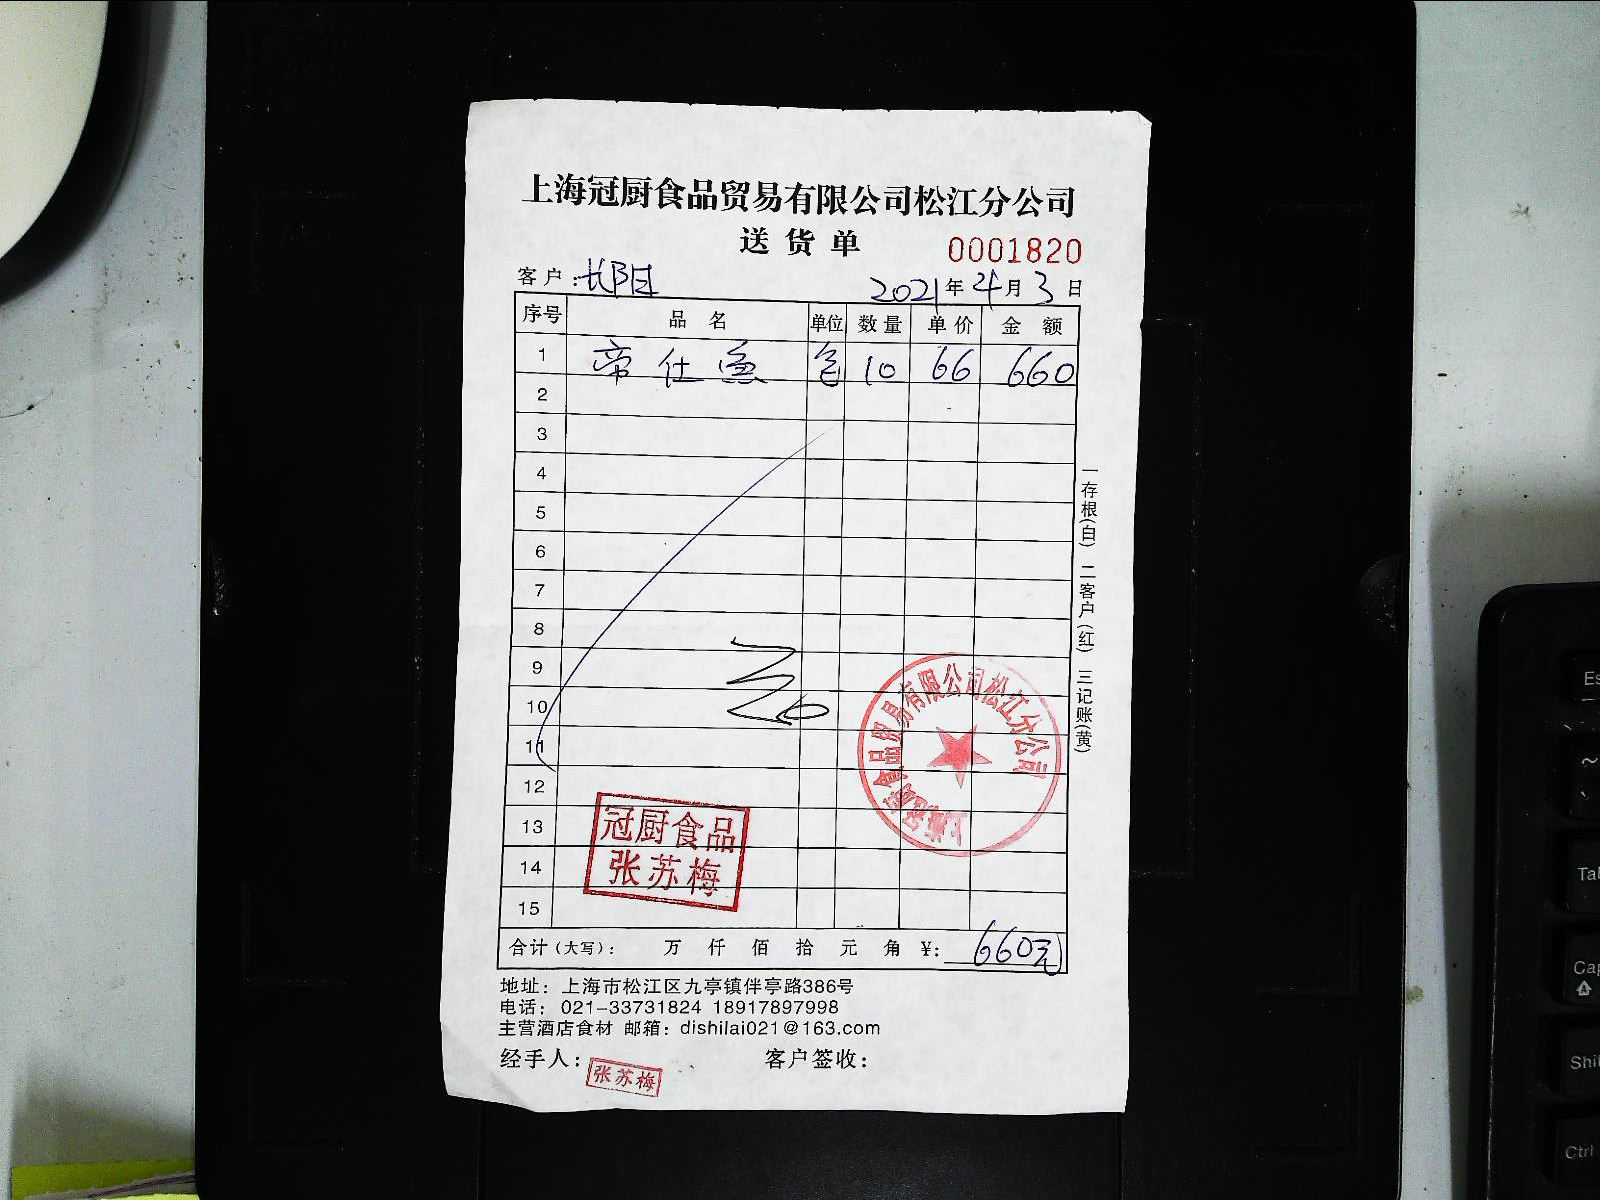 上海冠厨食品贸易有限公司松江分公司
送货单
0001820
客户：长阳
2021年4月3日
序号 品名 单位 数量 单价 金额
1 帝仕鱼 包 10 66 660
2
3
4
5
6
7
8
9
10
11
12
13
14
15
一存根(白) 二客户(红) 三记账(黄)
上海冠厨食品贸易有限公司松江分公司
冠厨食品
张苏梅
合计（大写）： 万 仟 佰 拾 元 角 ¥：660元
地址：上海市松江区九亭镇伴亭路386号
电话：021-33731824 18917897998
主营酒店食材 邮箱：dishilai021@163.com
经手人：张苏梅 客户签收：
Es
~
Tab
Cap
Shi
Ctrl